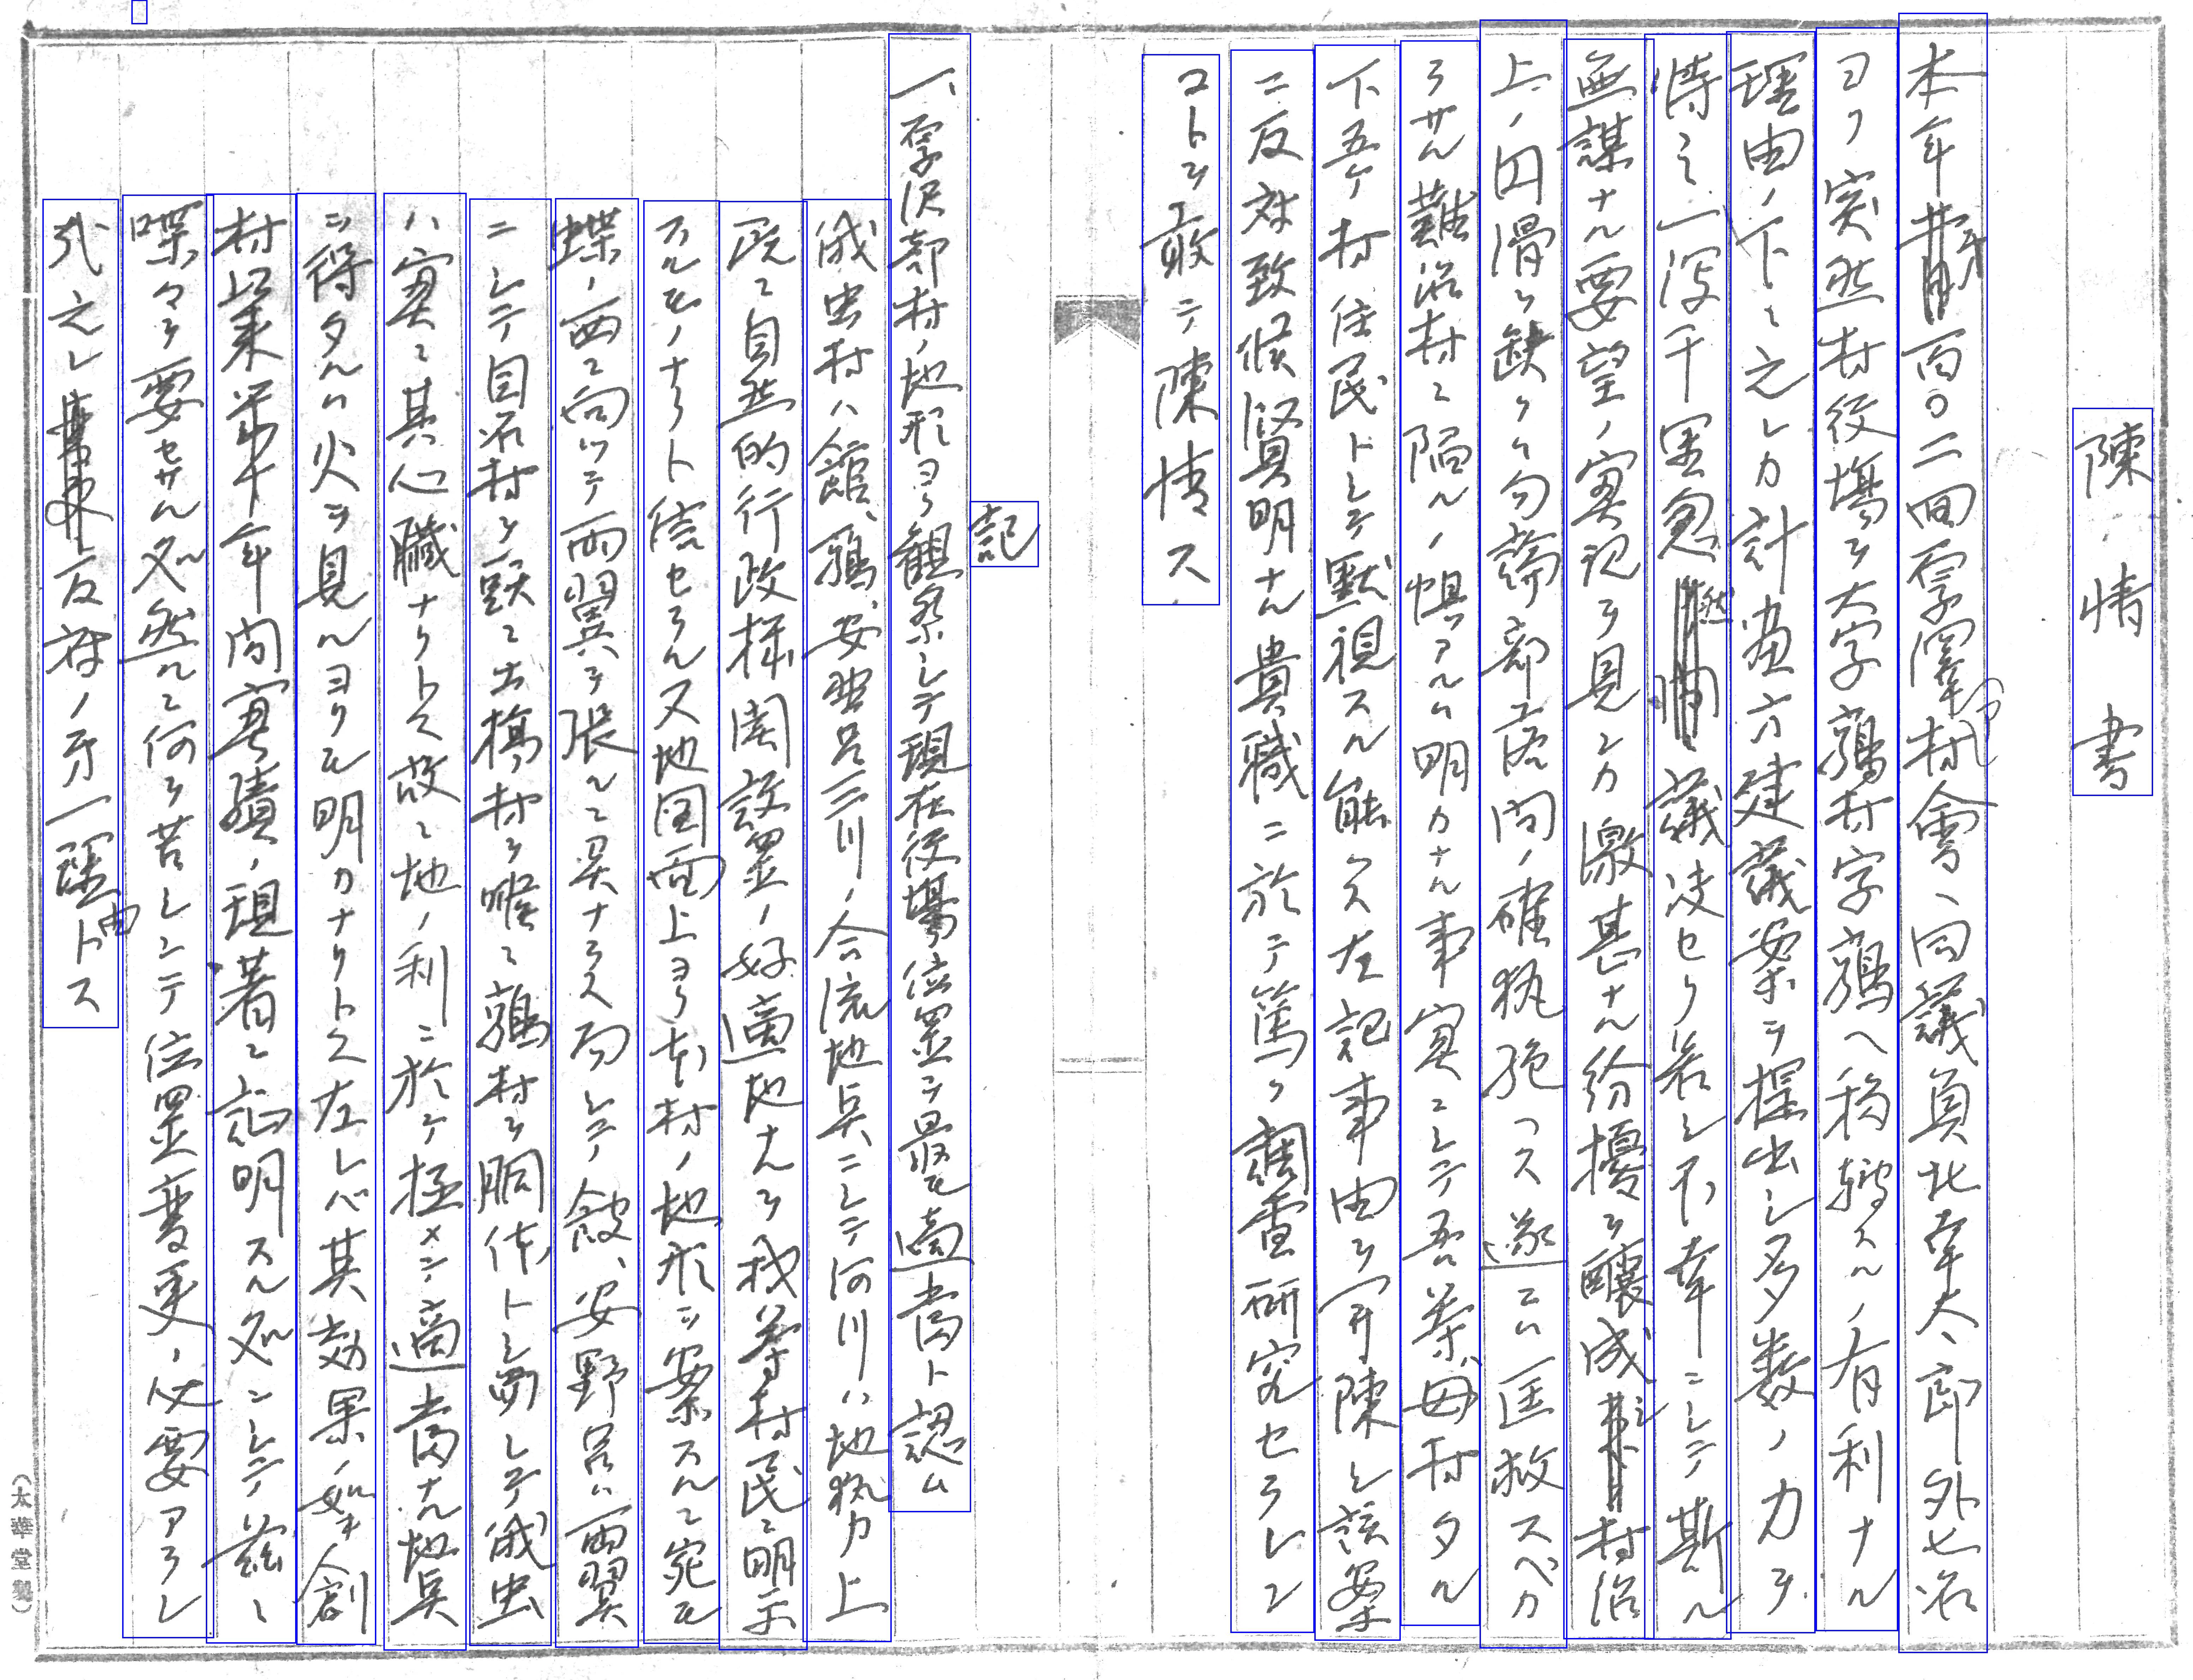 陳情書
本年第百〇二回厚沢部村会ヘ同議員北幸夫、郎外七名
ヨリ突然村役場ヲ大字鶉村字鶉ヘ移轉スルノ有利ナル
理由ノ下ニ之レカ計画方建議案ヲ提出シ多数ノ力ヲ
恃ミ一瀉千里忽然議決セリ若シ不幸ニシテ斯ル
無謀ナル要望ノ実現ヲ見ンカ激甚ナル紛擾ヲ醸成シ村治
上ノ円滑ヲ缺クハ勿論部落間ノ確執絶ヘス遂ニハ匡救スベカ
ラサル難治村ニ陥ルノ惧アルハ明カナル事実ニシテ吾等母村タル
下五ケ村住民トシテ黙視スル能ハス左記事由ヲ開陳シ該案
ニ反対致候賢明ナル貴職ニ於テ篤ク調査研究セラレン
コトヲ敢テ陳情ス
記
一、厚沢部村ノ地形ヨリ観察シテ現在役場位置ヲ最モ適当ト認ム
俄虫村ハ館、鶉、安野呂三川ノ合流地点ニシテ河川ハ地勢上
既ニ自然的行政機関設置ノ好適地ナルヲ我等村民ニ明示
スルモノナリト信セラル又地図面上ヨリ本村ノ地形ヲ案スルニ宛モ
蝶ノ西ニ向ツテ両翼ヲ張ルニ異ナラス而シテ館、安野呂ハ両翼
ニシテ目名村ヲ頭ニ土橋村ヲ喉ニ鶉村ヲ胴体トシ而シテ俄虫
ハ実ニ其心臓ナリトス故ニ地ノ利ニ於テ極メテ適当ナル地点
ヲ得タルハ火ヲ見ルヨリモ明カナリトス左レバ其効果ノ如キ創
村以来第十年間実蹟ノ現著ニ証明スル処ニシテ茲ニ
喋々ヲ要セサル処然ルニ何ヲ苦シンテ位置変更ノ必要アラン
哉之レ反対ノ第一理由トス
(太華堂製)